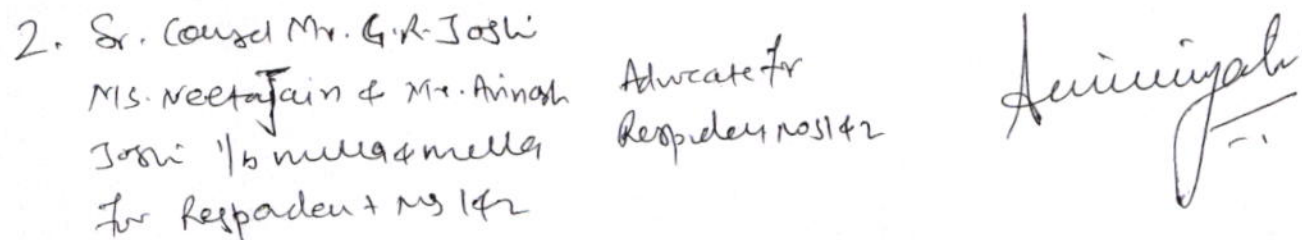 2. Sr. Counsel Mr. G.R. Joshi
Ms. Neeta Jain & Mr. Avinash
Joshi i/b mulla & mulla
for Respondent nos 1&2
Advocate for
Respondent nos 1&2